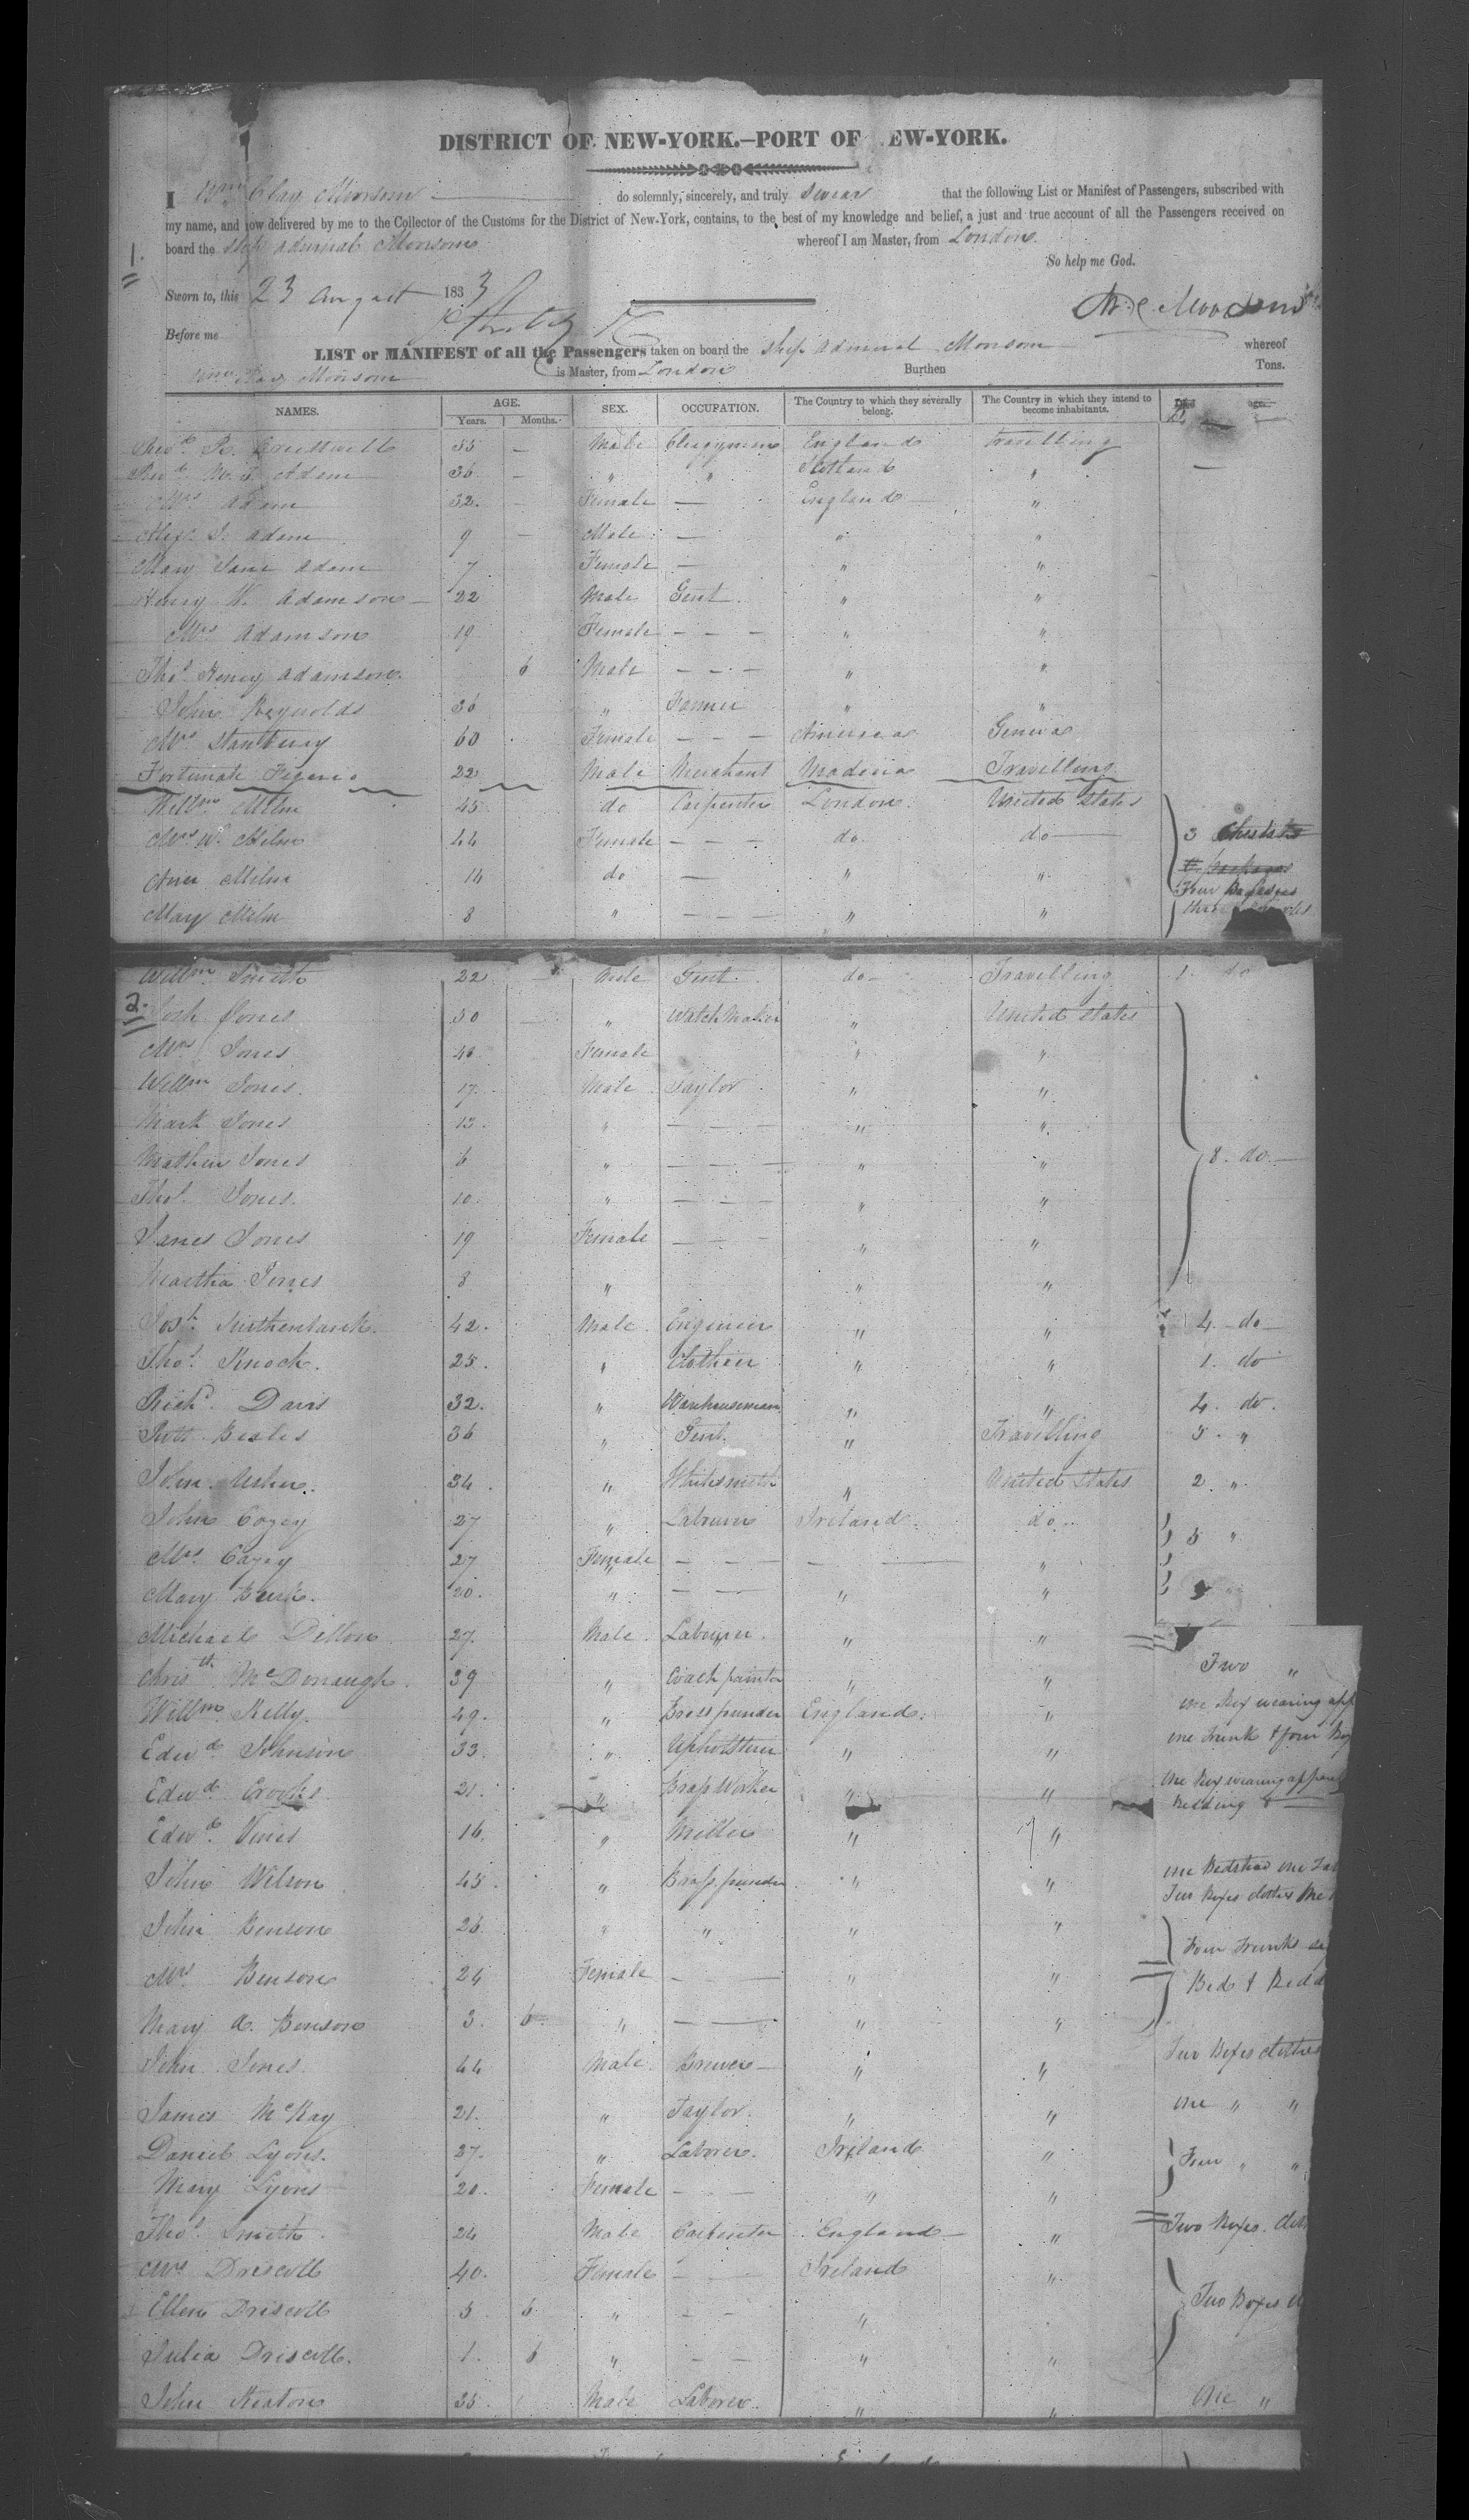 DISTRICT OF NEW-YORK.—PORT OF EW-YORK.
I Wm Clay Monsom do solemnly, sincerely, and truly swear that the following List or Manifest of Passengers, subscribed with
my name, and now delivered by me to the Collector of the Customs for the District of New-York, contains, to the best of my knowledge and belief, a just and true account of all the Passengers received on
board the ship admiral Monsom whereof I am Master, from London.
1. So help me God.
Sworn to, this 23 august 1833
Before me
LIST or MANIFEST of all the Passengers taken on board the ship admiral Monsom whereof
is Master, from London Burthen Tons.
NAMES. AGE. SEX. OCCUPATION. The Country to which they severally belong. The Country in which they intend to become inhabitants.
Years. Months.
35 — Male Clergyman England travelling
Adam 36 — " " Scotland "
Mrs Adam 32. Female — England "
Alexr. J. adam 9 — Male — " "
Mary Jane adam 7 Female — " "
Henry W. adamson 22 Male Gent. " "
Mrs adamson 19 Female — — — " "
Thos. Henry adamson. 6 Male — — — " "
John Reynolds 36 " Farmer " "
Mrs Stantbury 60 Female — — — America Geneva
Fortunate 22 Male Merchant Maderia Travelling
Willm. Milm 45 do Carpenter London. United States
Mrs W. Milm 44 Female — — — do. do 3
Ann Milm 14 do — " "
Mary Milm 8 " — — — " " Four
Willm. Smith 22 — Male Gent. do— Travelling 1. do
2. Josh Jones 50 — " Watch Maker " United States
Mrs Jones 43 Female " "
Willm Jones. 17. Male Taylor " "
Mark Jones 13. " — — — " "
Mathew Jones 6 " — — — " " 8. do
Thos. Jones. 10. " — — — " "
James Jones 19 Female — — — " "
Martha Jones 8 " " "
Josh. 42. Male. Engineer " " 4. do
Thos. Knock. 25. " Clothier " " 1. do
Richd. Davis 32. " Warehouseman " " 4. do.
Robt. Beales 36 " Gent. " Travelling 5. "
John Usher. 34. " Whitesmith " United States 2. "
John Cozey 27 " Labourer Ireland. do. 5 "
Mrs. Cozey 27 Female — — — — "
Mary Burk. 20. " — — " "
Michael Dillon 27. Male. Labourer. " " Two "
Christr. McDonaugh. 39 " Coach painter " "
Willm. Kelly. 49. " Brass funder England. " one Box wearing app
Edwd. Johnson 33. " Upholsterer " " one Trunk & four Box
Edwd. Crooks. 21. " Brass Worker " " one Box wearing apparel
Bedding &
Edwd. Vines 16. " Miller " "
John Wilson 45. " Brass funder " " one Bedstead one
Two Boxes clothes
John Benson 26. " " " " Four Trunks
Mrs Benson 24 Female — — " " Bed & Bedd
Mary A. Benson 3. 6 " — — " "
John Jones 44 Male Brewer — " " Two Boxes clothes
James McKay 21. " Taylor. " " one " "
Daniel Lyons. 27. " Laborer. Ireland " Four " "
Mary Lyons 20. Female — — " "
Thos. Smith. 24 Male Carpenter England — " Two Boxes.
Mrs Driscoll 40. Female — — Ireland "
Ellen Driscoll 3 6 " — — " Two Boxes
Julia Driscoll. 1. 6 " — — " "
John Keaton 25. Male Laborer. " " One "